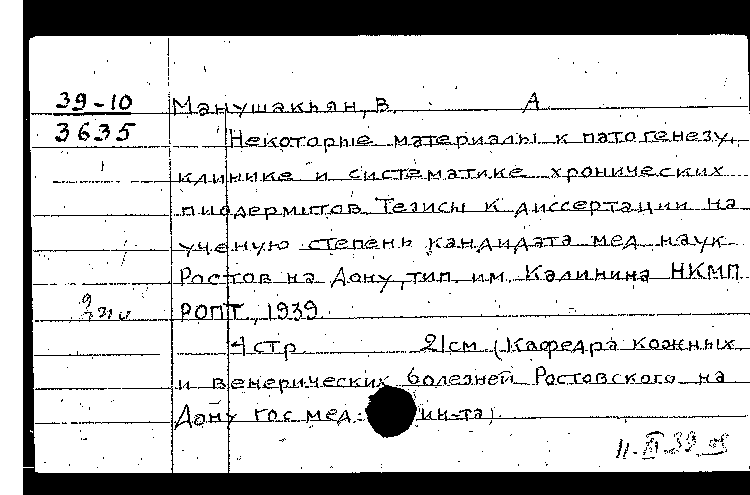 39-10 Манушакьян, В. А
3635 Некоторые материалы к патогенезу,
клинике и систематике хронических
пиодермитов. Тезисы к диссертации на
ученую степень кандидата мед. наук
Ростов на Дону, тип. им. Калинина НКМП
РОПТ, 1939
4 стр 21см (Кафедра кожных
и венерических болезней Ростовского на
Дону гос мед. ин-та).
11.XI.39